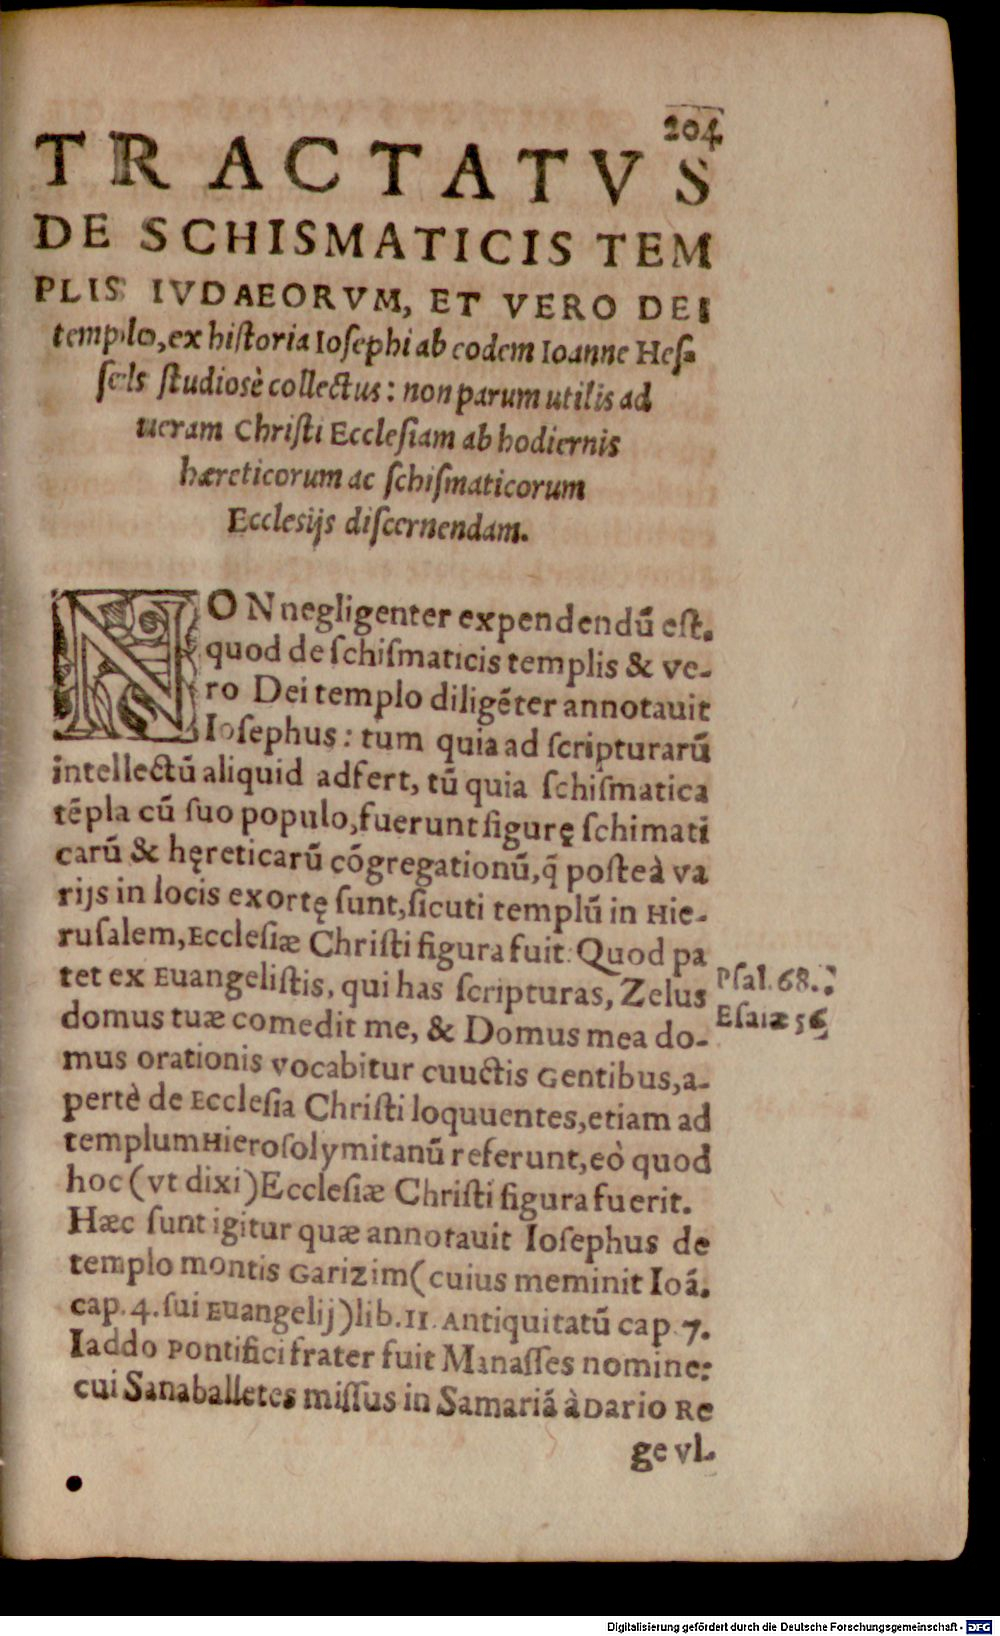 204
TRACTATVS
DE SCHISMATICIS TEM
PLIS IVDAEORVM, ET VERO DEI
templo, ex historia Iosephi ab eodem Ioanne Hes-
sels studiosè collectus: non parum utilis ad
ueram Christi Ecclesiam ab hodiernis
hæreticorum ac schismaticorum
Ecclesijs discernendam.
NON negligenter expendendū est.
quod de schismaticis templis & ve-
ro Dei templo diligēter annotauit
Iosephus: tum quia ad scripturarū
intellectū aliquid adfert, tū quia schismatica
tēpla cū suo populo, fuerunt figurę schimati
carū & hęreticarū cōgregationū, q̄ posteà va
rijs in locis exortę sunt, sicuti templū in Hie-
rusalem, Ecclesiæ Christi figura fuit. Quod pa
tet ex Euangelistis, qui has scripturas, Zelus
domus tuæ comedit me, & Domus mea do-
mus orationis vocabitur cuuctis Gentibus, a-
pertè de Ecclesia Christi loquuentes, etiam ad
templum Hierosolymitanū referunt, eò quod
hoc (vt dixi) Ecclesiæ Christi figura fuerit.
Hæc sunt igitur quæ annotauit Iosephus de
templo montis Garizim (cuius meminit Ioā.
cap. 4. sui Euangelij) lib. 11. Antiquitatū cap. 7.
Iaddo Pontifici frater fuit Manasses nomine:
cui Sanaballetes missus in Samariā à Dario Re
ge vl.
Psal. 68.
Esaiæ 56
Digitalisierung gefördert durch die Deutsche Forschungsgemeinschaft - DFG